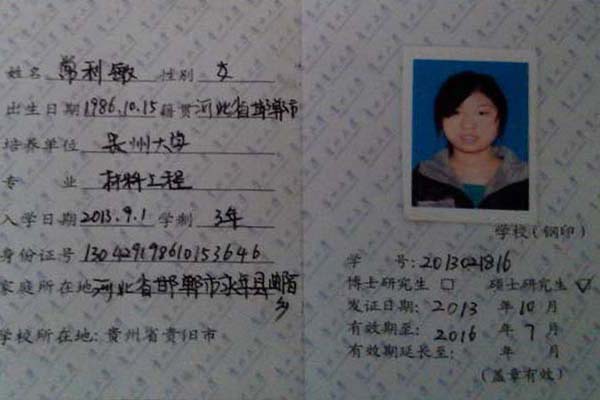 姓名 常利敏 性别 女
出生日期 1986.10.15 籍贯 河北省邯郸市
培养单位 贵州大学
专 业 材料工程
入学日期 2013.9.1 学制 3年
身份证号 130429198610153646
家庭所在地 河北省邯郸市永年县曲陌乡
学校所在地: 贵州省贵阳市
学校(钢印)
学 号: 2013021816
博士研究生 □ 硕士研究生 ☑
发证日期: 2013 年 10 月
有效期至: 2016 年 7 月
有效期延长至: 年 月
(盖章有效)